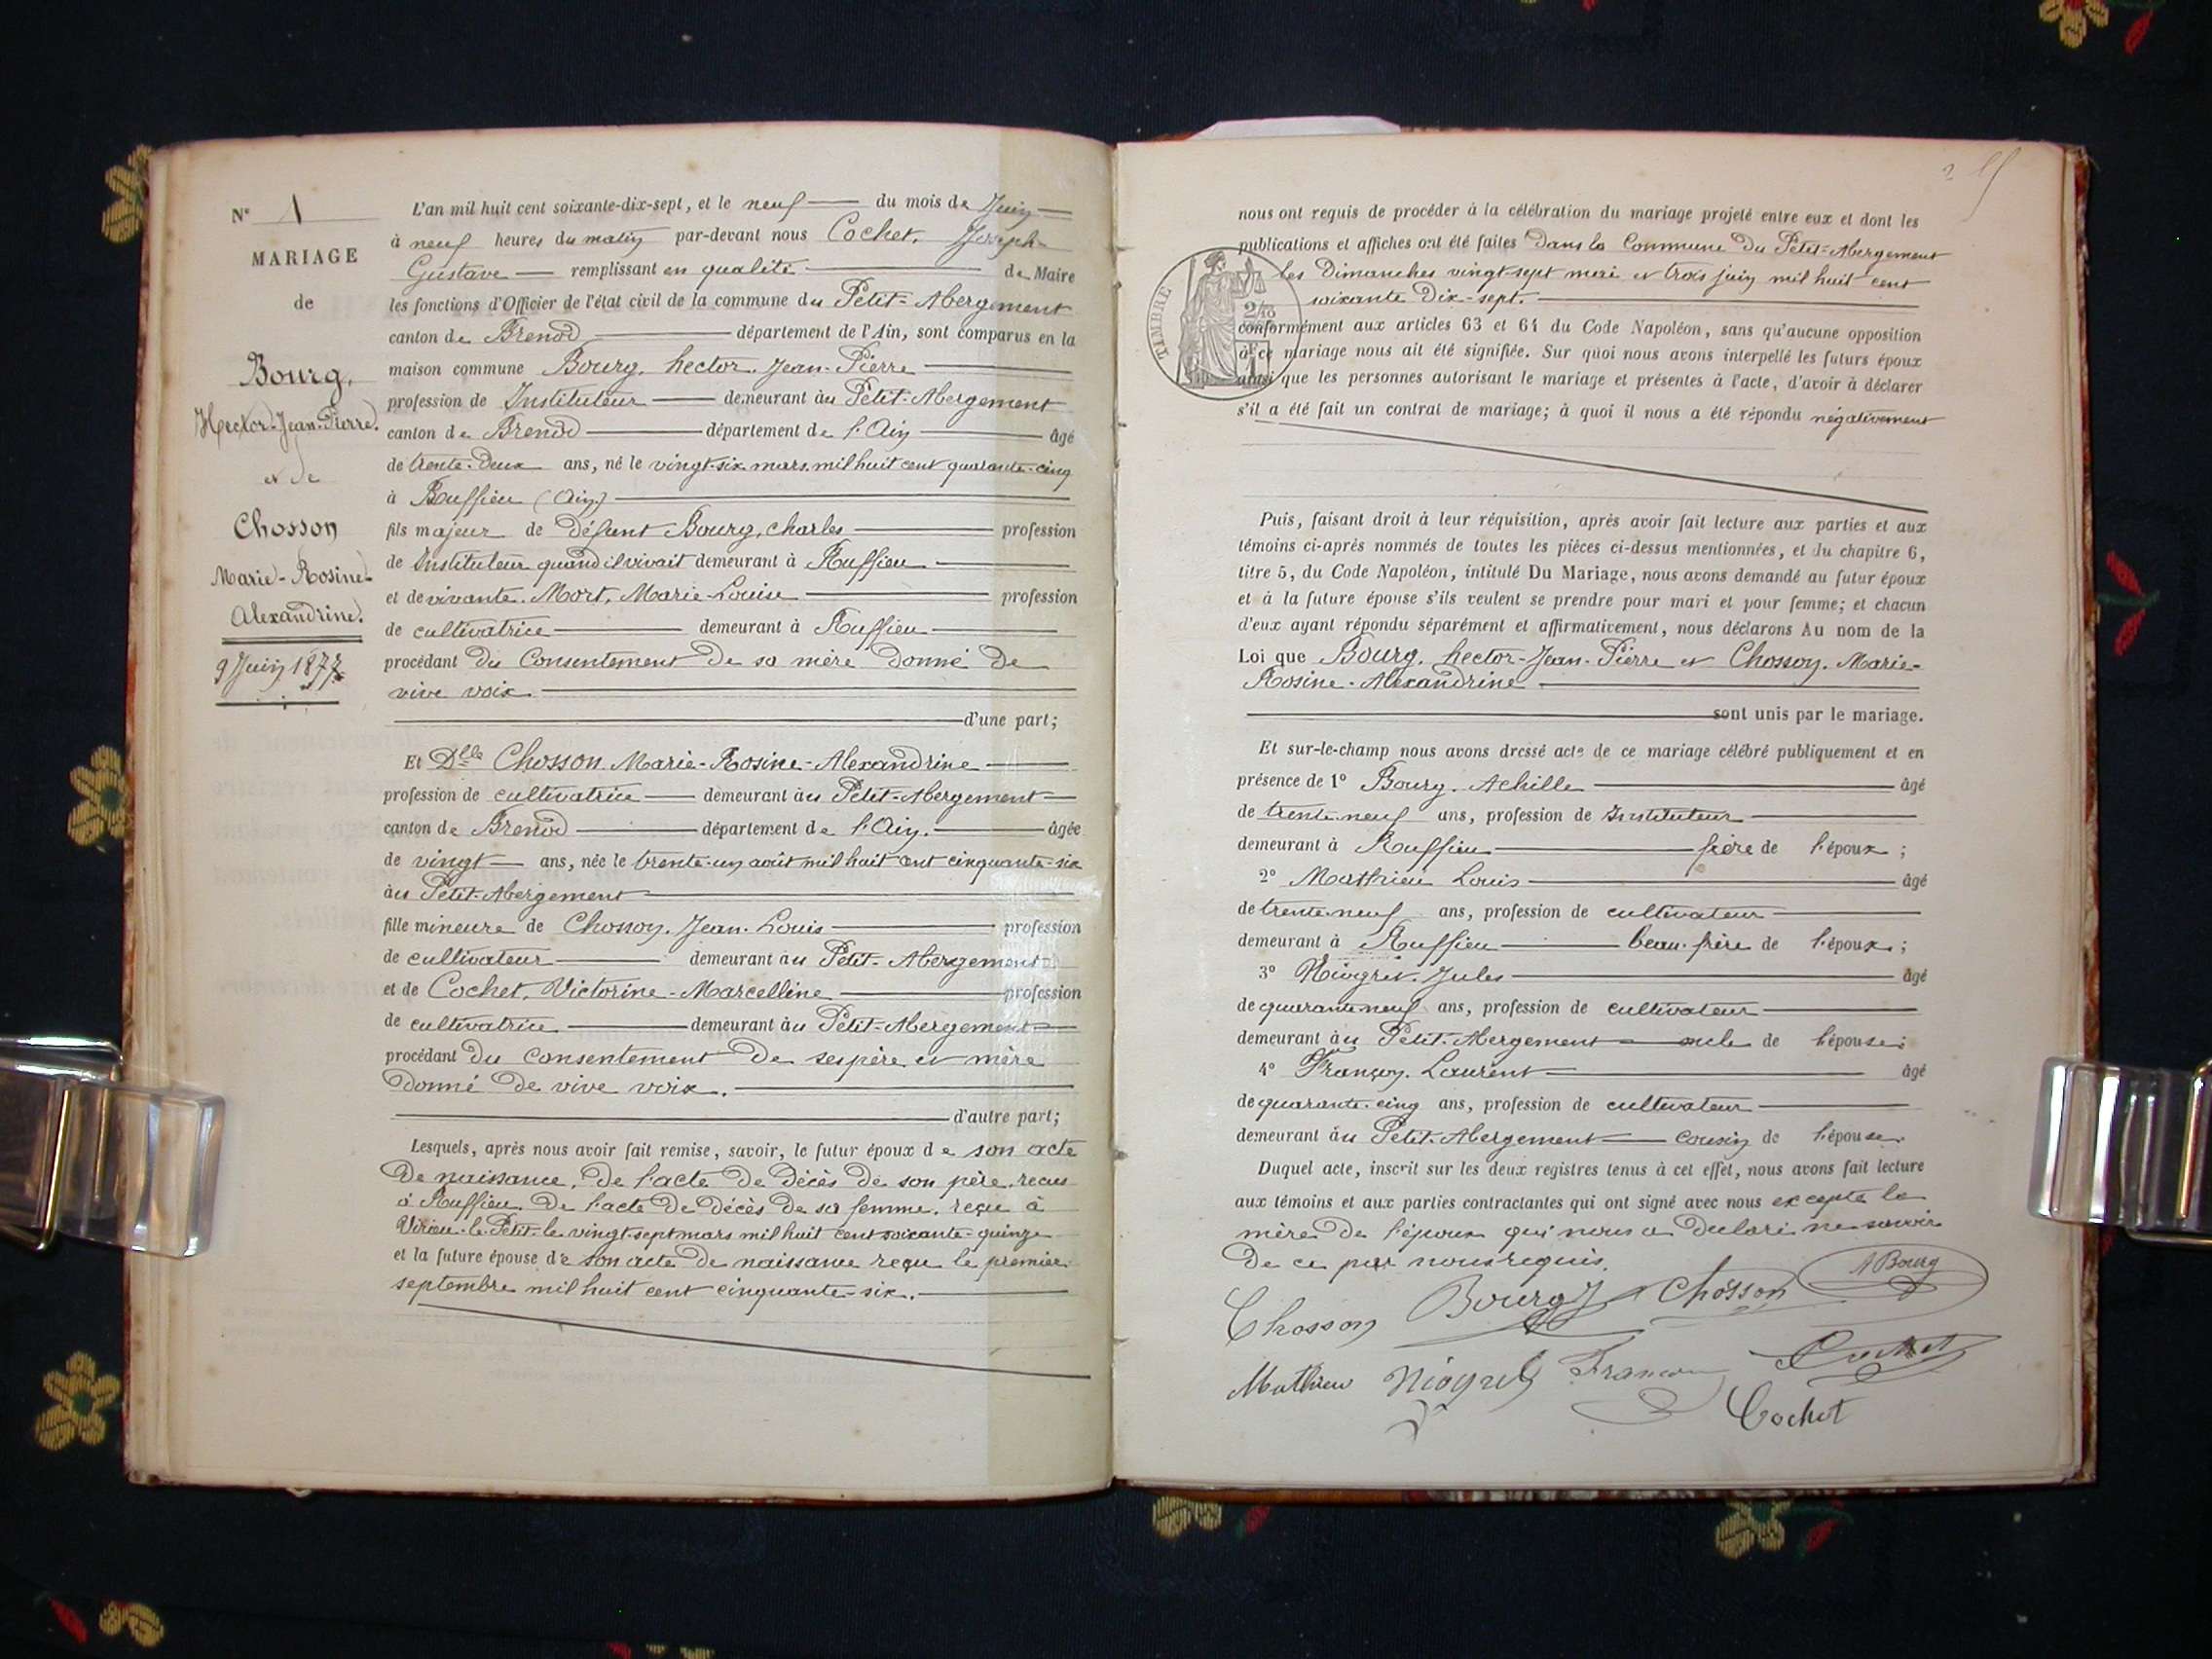 N° 1
MARIAGE
de
Bourg,
Hector-Jean-Pierre.
et de
Chosson
Marie-Rosine-
Alexandrine.
9 Juin 1877.
L'an mil huit cent soixante-dix-sept, et le neuf du mois de Juin
à neuf heures du matin par-devant nous Cochet, Joseph-
Gustave remplissant en qualité de Maire
les fonctions d'Officier de l'état civil de la commune du Petit-Abergement
canton de Brenod département de l'Ain, sont comparus en la
maison commune Bourg, hector, Jean-Pierre
profession de Instituteur demeurant au Petit-Abergement
canton de Brenod département de l'Ain âgé
de trente-deux ans, né le vingt-six mars mil huit cent quarante-cinq
à Ruffieu (Ain)
fils majeur de défunt Bourg, charles profession
de Instituteur quand il vivait demeurant à Ruffieu
et de vivante Mort, Marie-Louise profession
de cultivatrice demeurant à Ruffieu
procédant du Consentement de sa mère donné de
vive voix.
d'une part;
Et Dlle Chosson Marie-Rosine-Alexandrine
profession de cultivatrice demeurant au Petit-Abergement
canton de Brenod département de l'Ain. âgée
de vingt ans, née le trente-un août mil huit cent cinquante-six
au Petit-Abergement
fille mineure de Chosson, Jean-Louis profession
de cultivateur demeurant au Petit-Abergement
et de Cochet, Victorine-Marcelline profession
de cultivatrice demeurant au Petit-Abergement
procédant du consentement de ses père et mère
donné de vive voix.
d'autre part;
Lesquels, après nous avoir fait remise, savoir, le futur époux de son acte
de naissance, de l'acte de décès de son père, reçus
à Ruffieu de l'acte de décès de sa femme, reçu à
Virieu-le-Petit le vingt-sept mars mil huit cent soixante-quinze
et la future épouse de son acte de naissance reçu le premier
septembre mil huit cent cinquante-six.
nous ont requis de procéder à la célébration du mariage projeté entre eux et dont les
publications et affiches ont été faites dans la Commune du Petit-Abergement
les Dimanches vingt-sept mai et trois juin mil huit cent
soixante dix-sept.
TIMBRE
2/10
conformément aux articles 63 et 64 du Code Napoléon, sans qu'aucune opposition
à ce mariage nous ait été signifiée. Sur quoi nous avons interpellé les futurs époux
ainsi que les personnes autorisant le mariage et présentes à l'acte, d'avoir à déclarer
s'il a été fait un contrat de mariage; à quoi il nous a été répondu négativement
Puis, faisant droit à leur réquisition, après avoir fait lecture aux parties et aux
témoins ci-après nommés de toutes les pièces ci-dessus mentionnées, et du chapitre 6,
titre 5, du Code Napoléon, intitulé Du Mariage, nous avons demandé au futur époux
et à la future épouse s'ils veulent se prendre pour mari et pour femme; et chacun
d'eux ayant répondu séparément et affirmativement, nous déclarons Au nom de la
Loi que Bourg, hector-Jean-Pierre et Chosson, Marie-
Rosine-Alexandrine
sont unis par le mariage.
Et sur-le-champ nous avons dressé acte de ce mariage célébré publiquement et en
présence de 1° Bourg, Achille âgé
de trente-neuf ans, profession de Instituteur
demeurant à Ruffieu frère de l'époux;
2° Matthieu Louis âgé
de trente-neuf ans, profession de cultivateur
demeurant à Ruffieu beau-frère de l'époux;
3° Niogret, Jules âgé
de quarante-neuf ans, profession de cultivateur
demeurant au Petit-Abergement oncle de l'épouse;
4° Françon, Laurent âgé
de quarante-cinq ans, profession de cultivateur
demeurant au Petit-Abergement cousin de l'épouse.
Duquel acte, inscrit sur les deux registres tenus à cet effet, nous avons fait lecture
aux témoins et aux parties contractantes qui ont signé avec nous excepté la
mère de l'époux qui nous a déclaré ne savoir
de ce par nous requis.
Chosson Bourg J Chosson A Bourg
Mathieu Niogret Françon Cochet
Cochet